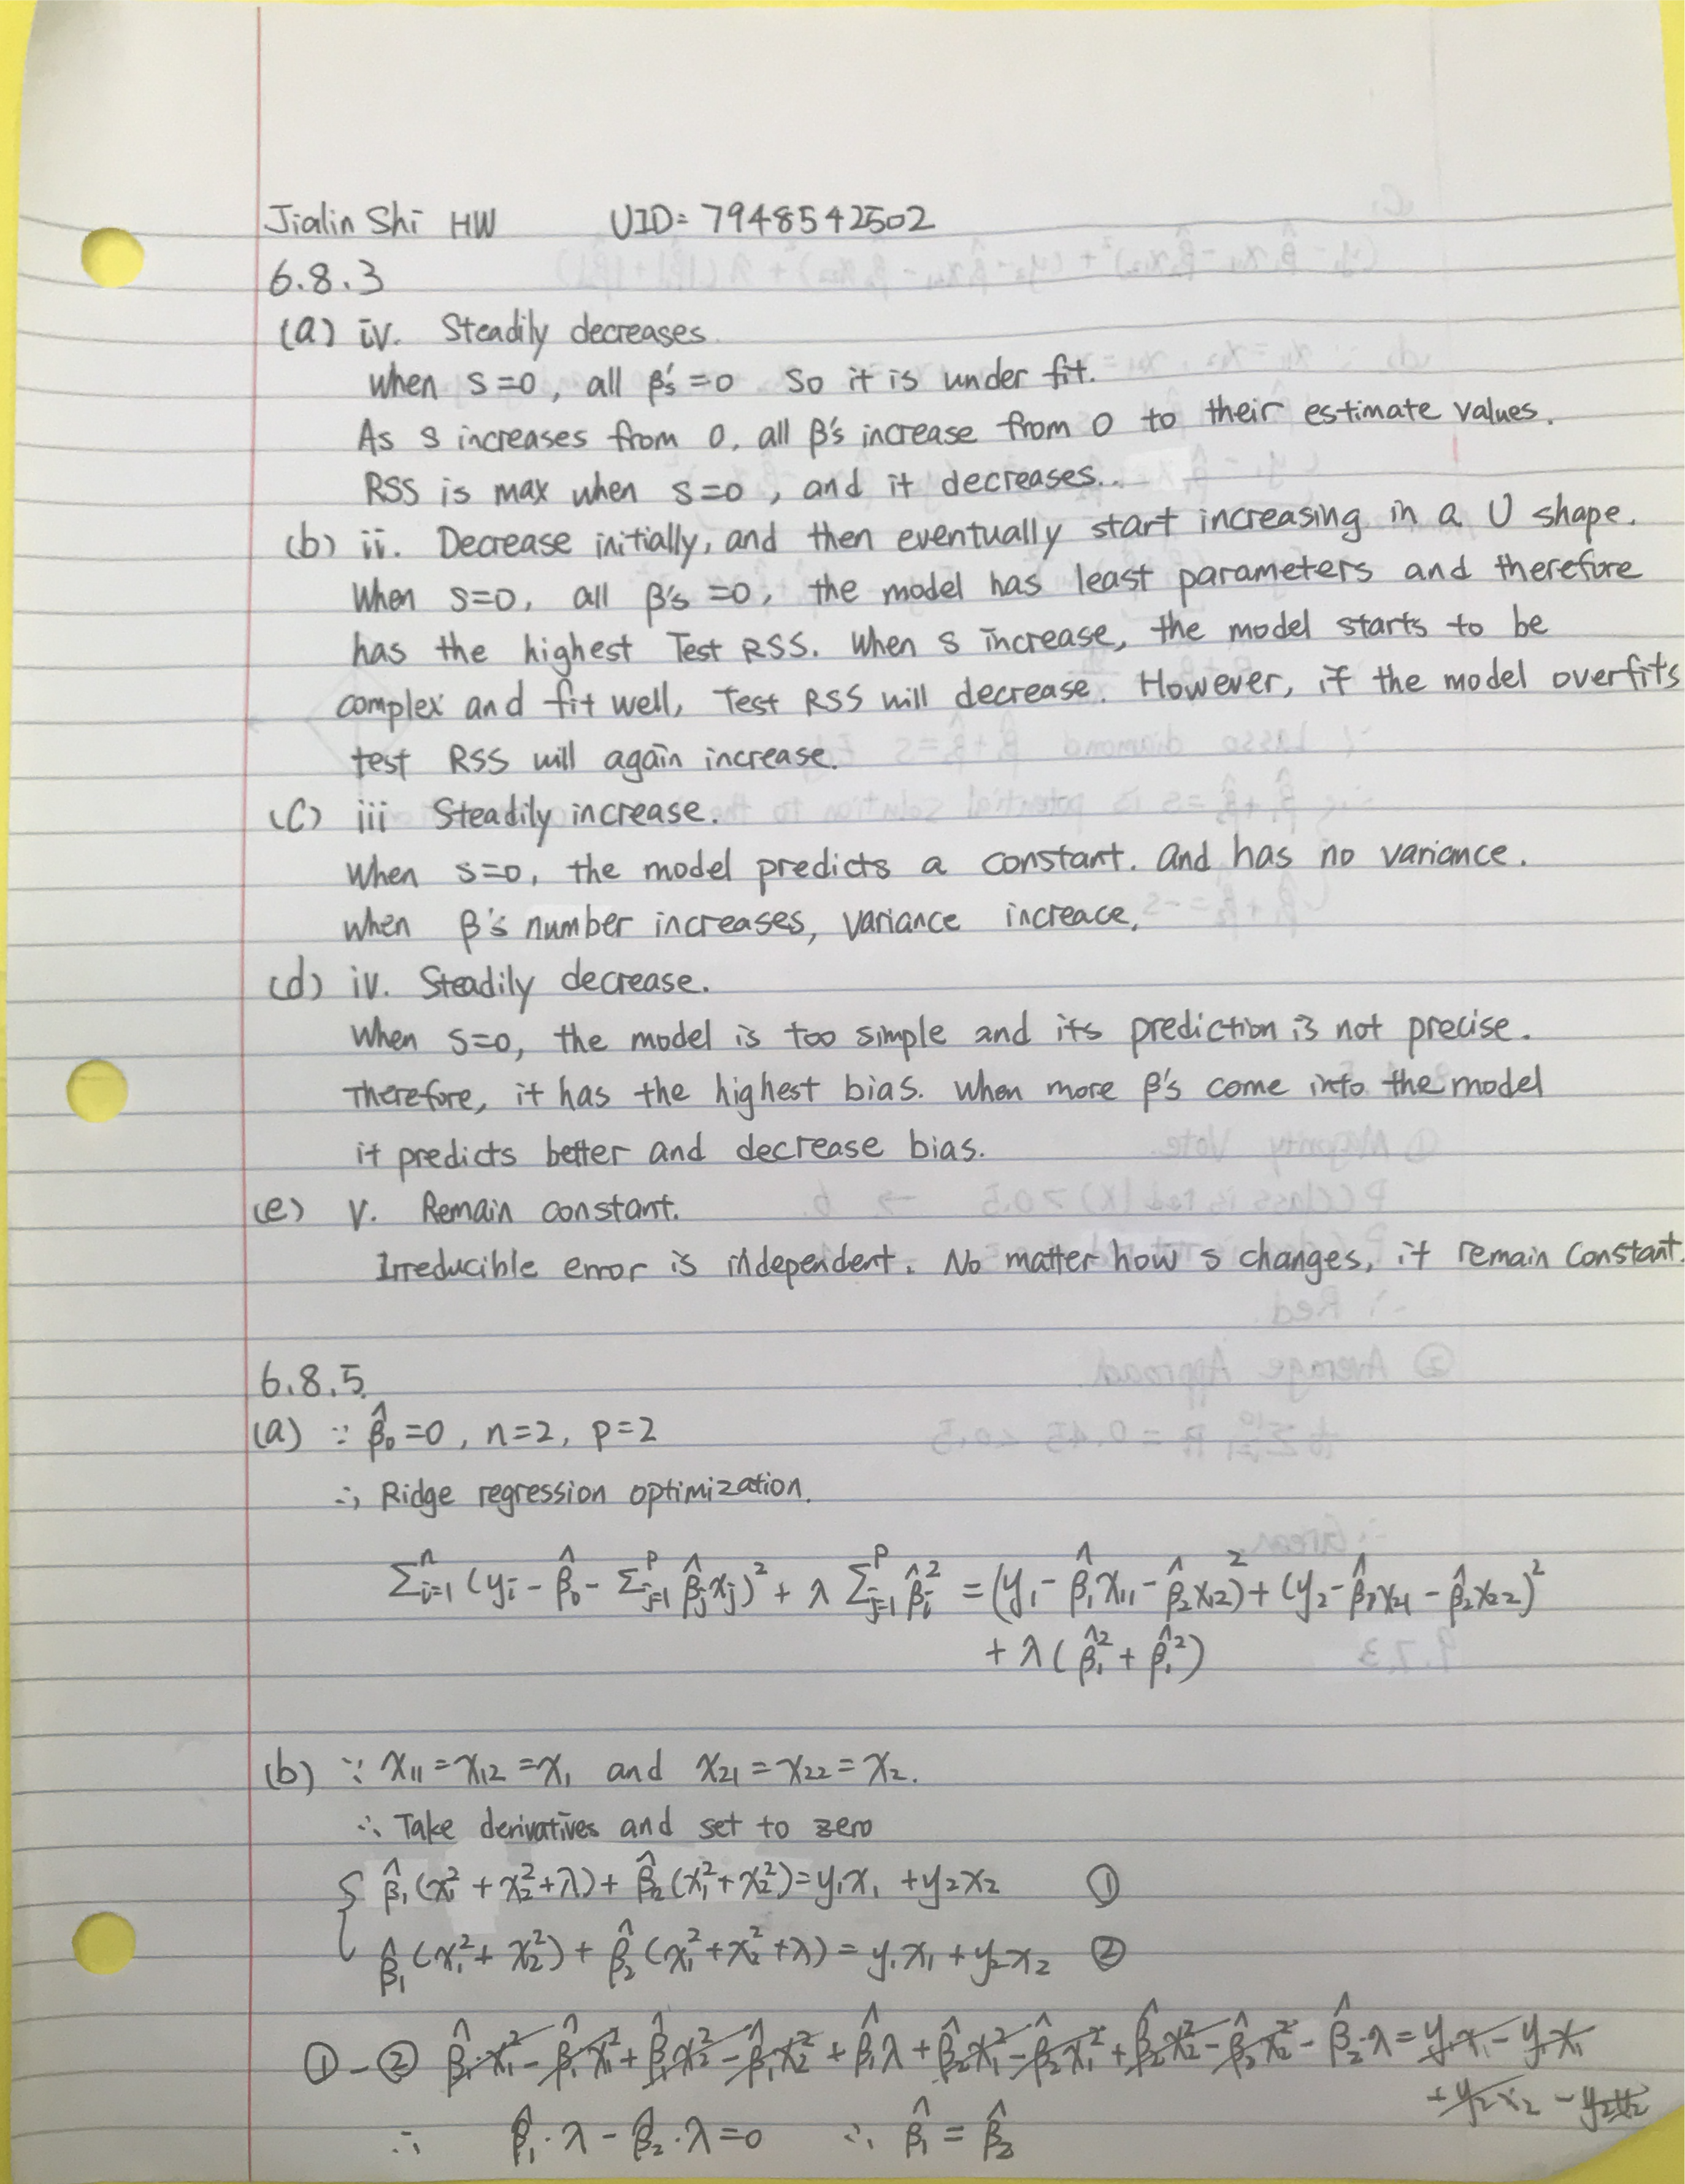 Jialin Shi HW UID= 7948542502
6.8.3
(a) iv. Steadily decreases.
When s=0, all β's =0 So it is under fit.
As s increases from 0, all β's increase from 0 to their estimate values.
RSS is max when s=0, and it decreases..
(b) ii. Decrease initially, and then eventually start increasing in a U shape.
When s=0, all β's =0, the model has least parameters and therefore
has the highest Test RSS. When s increase, the model starts to be
complex and fit well, Test RSS will decrease. However, if the model overfits
test RSS will again increase.
(c) iii Steadily increase.
When s=0, the model predicts a constant. and has no variance.
when β's number increases, variance increace,
(d) iv. Steadily decrease.
When s=0, the model is too simple and its prediction is not precise.
Therefore, it has the highest bias. When more β's come into the model
it predicts better and decrease bias.
(e) v. Remain constant.
Irreducible error is independent. No matter how s changes, it remain constant.
6.8.5.
(a) ∵ β̂₀=0, n=2, p=2
∴, Ridge regression optimization.
Σⁿᵢ₌₁ (yᵢ - β̂₀ - Σᵖⱼ₌₁ β̂ⱼxⱼ)² + λ Σᵖⱼ₌₁ β̂ᵢ² = (y₁ - β̂₁x₁₁ - β̂₂x₁₂)² + (y₂ - β̂₁x₂₁ - β̂₂x₂₂)²
+ λ(β̂₁² + β̂₁²)
(b) ∵ x₁₁ = x₁₂ = x₁ and x₂₁ = x₂₂ = x₂.
∴ Take derivatives and set to zero
{ β̂₁(x₁² + x₂² + λ) + β̂₂(x₁² + x₂²) = y₁x₁ + y₂x₂ ①
β̂₁(x₁² + x₂²) + β̂₂(x₁² + x₂² + λ) = y₁x₁ + y₂x₂ ②
① - ② β̂₁x₁² - β̂₁x₁² + β̂₁x₂² - β̂₁x₂² + β̂₁λ + β̂₂x₁² - β̂₂x₁² + β̂₂x₂² - β̂₂x₂² - β̂₂·λ = y₁x₁ - y₁x₁
+ y₂x₂ - y₂x₂
∴ β̂₁·λ - β̂₂·λ = 0 ∴, β̂₁ = β̂₂